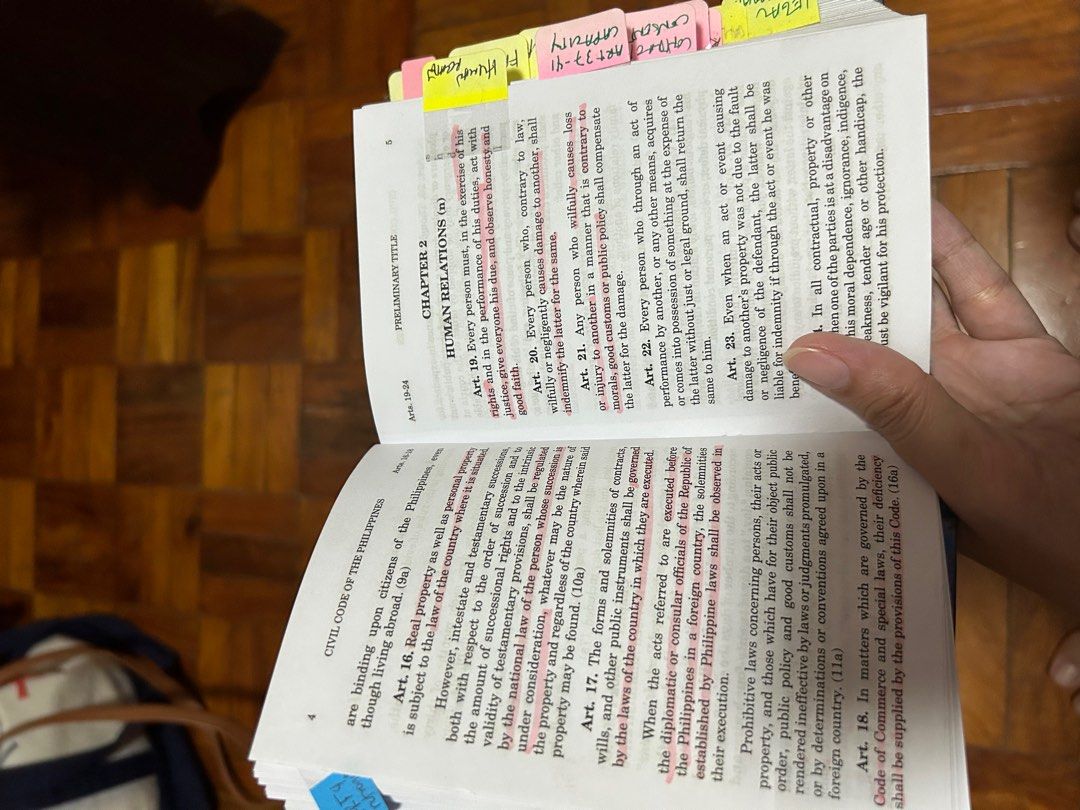 4
CIVIL CODE OF THE PHILIPPINES
are binding upon citizens of the Philippines, even
though living abroad. (9a)
Art. 16. Real property as well as personal property
is subject to the law of the country where it is situated
However, intestate and testamentary successions,
both with respect to the order of succession and to
the amount of successional rights and to the intrinsic
validity of testamentary provisions, shall be regulated
by the national law of the person whose succession is
under consideration, whatever may be the nature of
the property and regardless of the country wherein said
property may be found. (10a)
Art. 17. The forms and solemnities of contracts,
wills, and other public instruments shall be governed
by the laws of the country in which they are executed.
When the acts referred to are executed before
the diplomatic or consular officials of the Republic of
the Philippines in a foreign country, the solemnities
established by Philippine laws shall be observed in
their execution.
Prohibitive laws concerning persons, their acts or
property, and those which have for their object public
order, public policy and good customs shall not be
rendered ineffective by laws or judgments promulgated,
or by determinations or conventions agreed upon in a
foreign country. (11a)
Art. 18. In matters which are governed by the
Code of Commerce and special laws, their deficiency
shall be supplied by the provisions of this Code. (16a)
Arts. 19-24
PRELIMINARY TITLE
5
CHAPTER 2
HUMAN RELATIONS (n)
Art. 19. Every person must, in the exercise of his
rights and in the performance of his duties, act with
justice, give everyone his due, and observe honesty and
good faith.
Art. 20. Every person who, contrary to law,
wilfully or negligently causes damage to another, shall
indemnify the latter for the same.
Art. 21. Any person who wilfully causes loss
or injury to another in a manner that is contrary to
morals, good customs or public policy shall compensate
the latter for the damage.
Art. 22. Every person who through an act of
performance by another, or any other means, acquires
or comes into possession of something at the expense of
the latter without just or legal ground, shall return the
same to him.
Art. 23. Even when an act or event causing
damage to another's property was not due to the fault
or negligence of the defendant, the latter shall be
liable for indemnity if through the act or event he was
bene
In all contractual, property or other
hen one of the parties is at a disadvantage on
his moral dependence, ignorance, indigence,
eakness, tender age or other handicap, the
ust be vigilant for his protection.
HUMAN
ART 37-41
CAPACITY
LEGAL